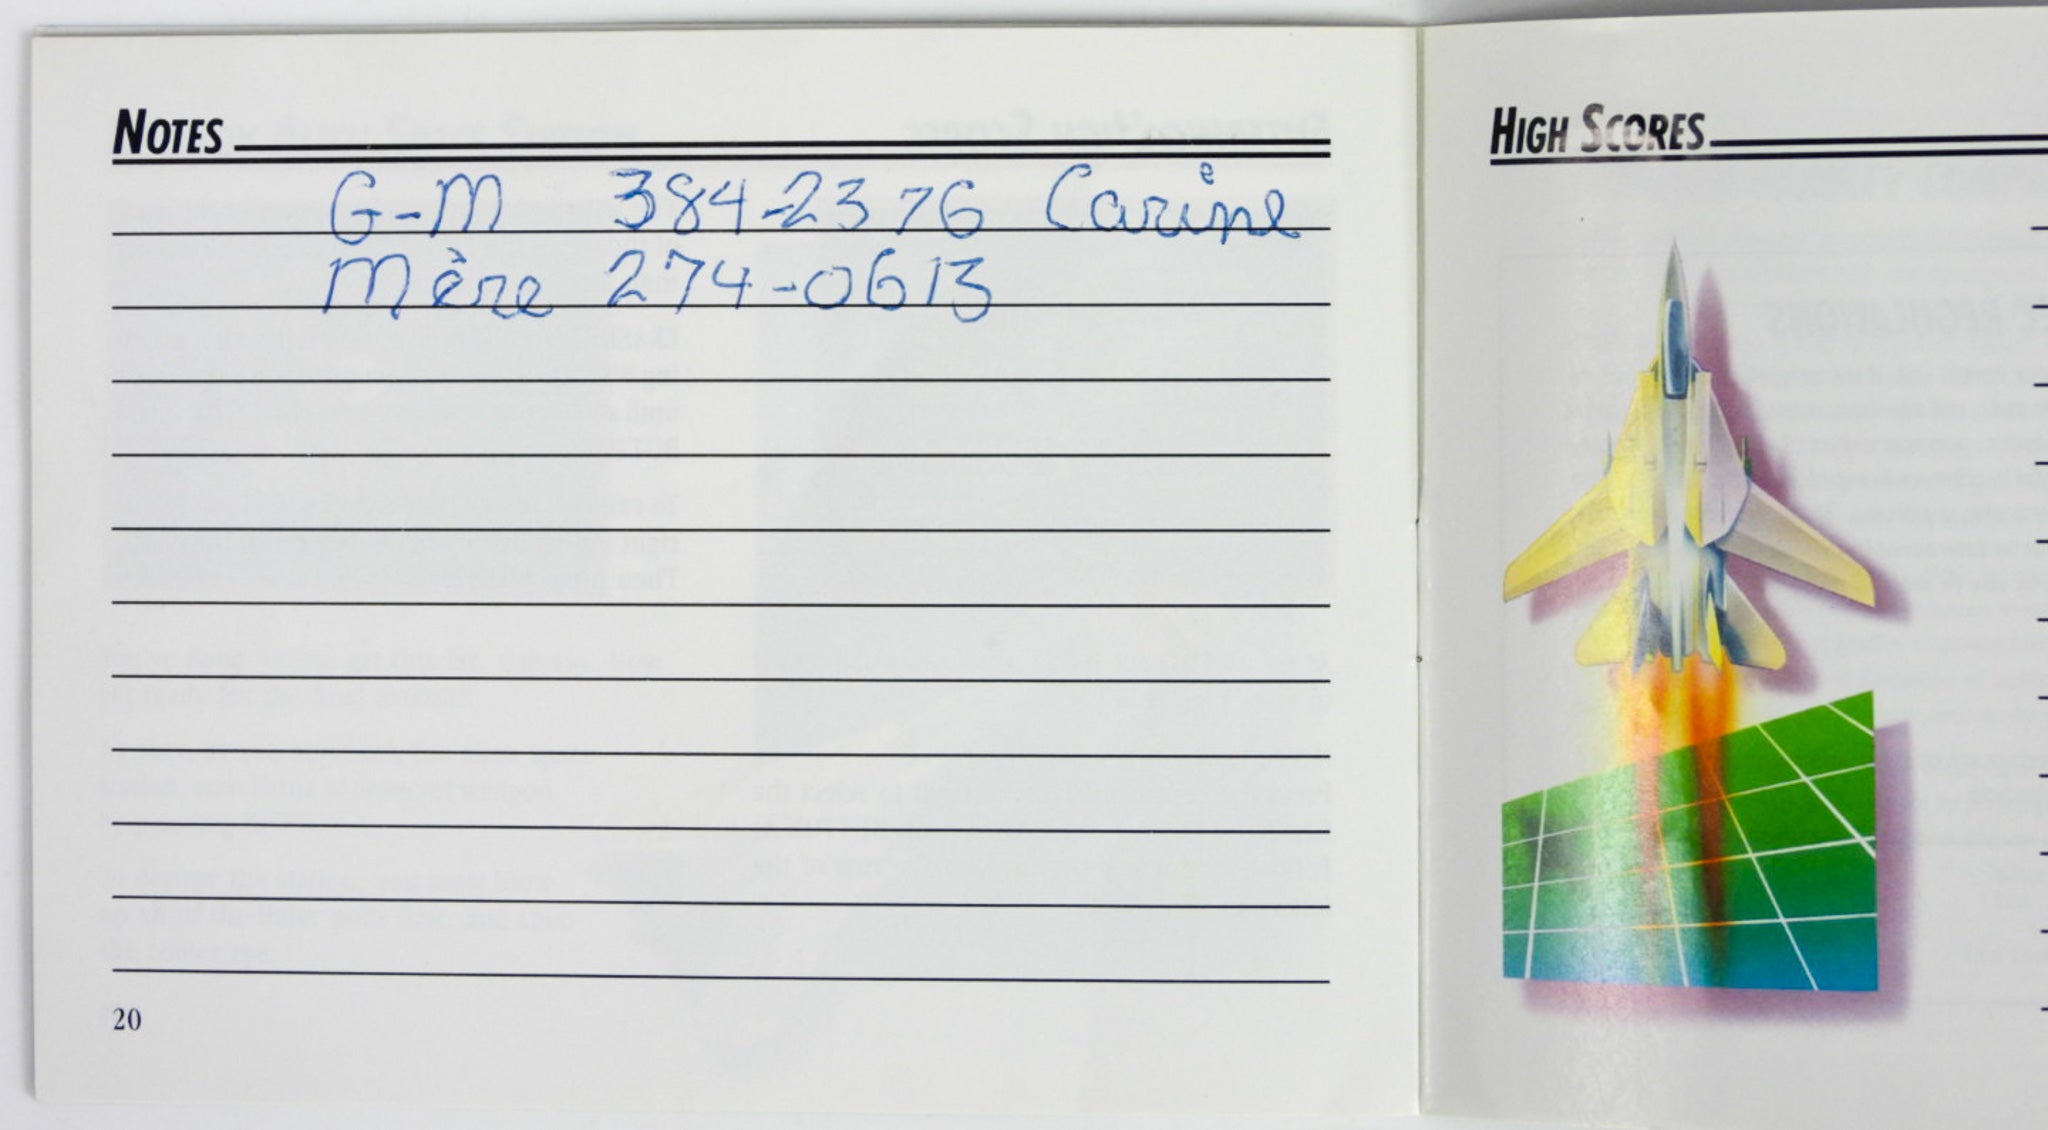 NOTES
G-M 384-2376 Carine
Mère 274-0613
20
HIGH SCORES